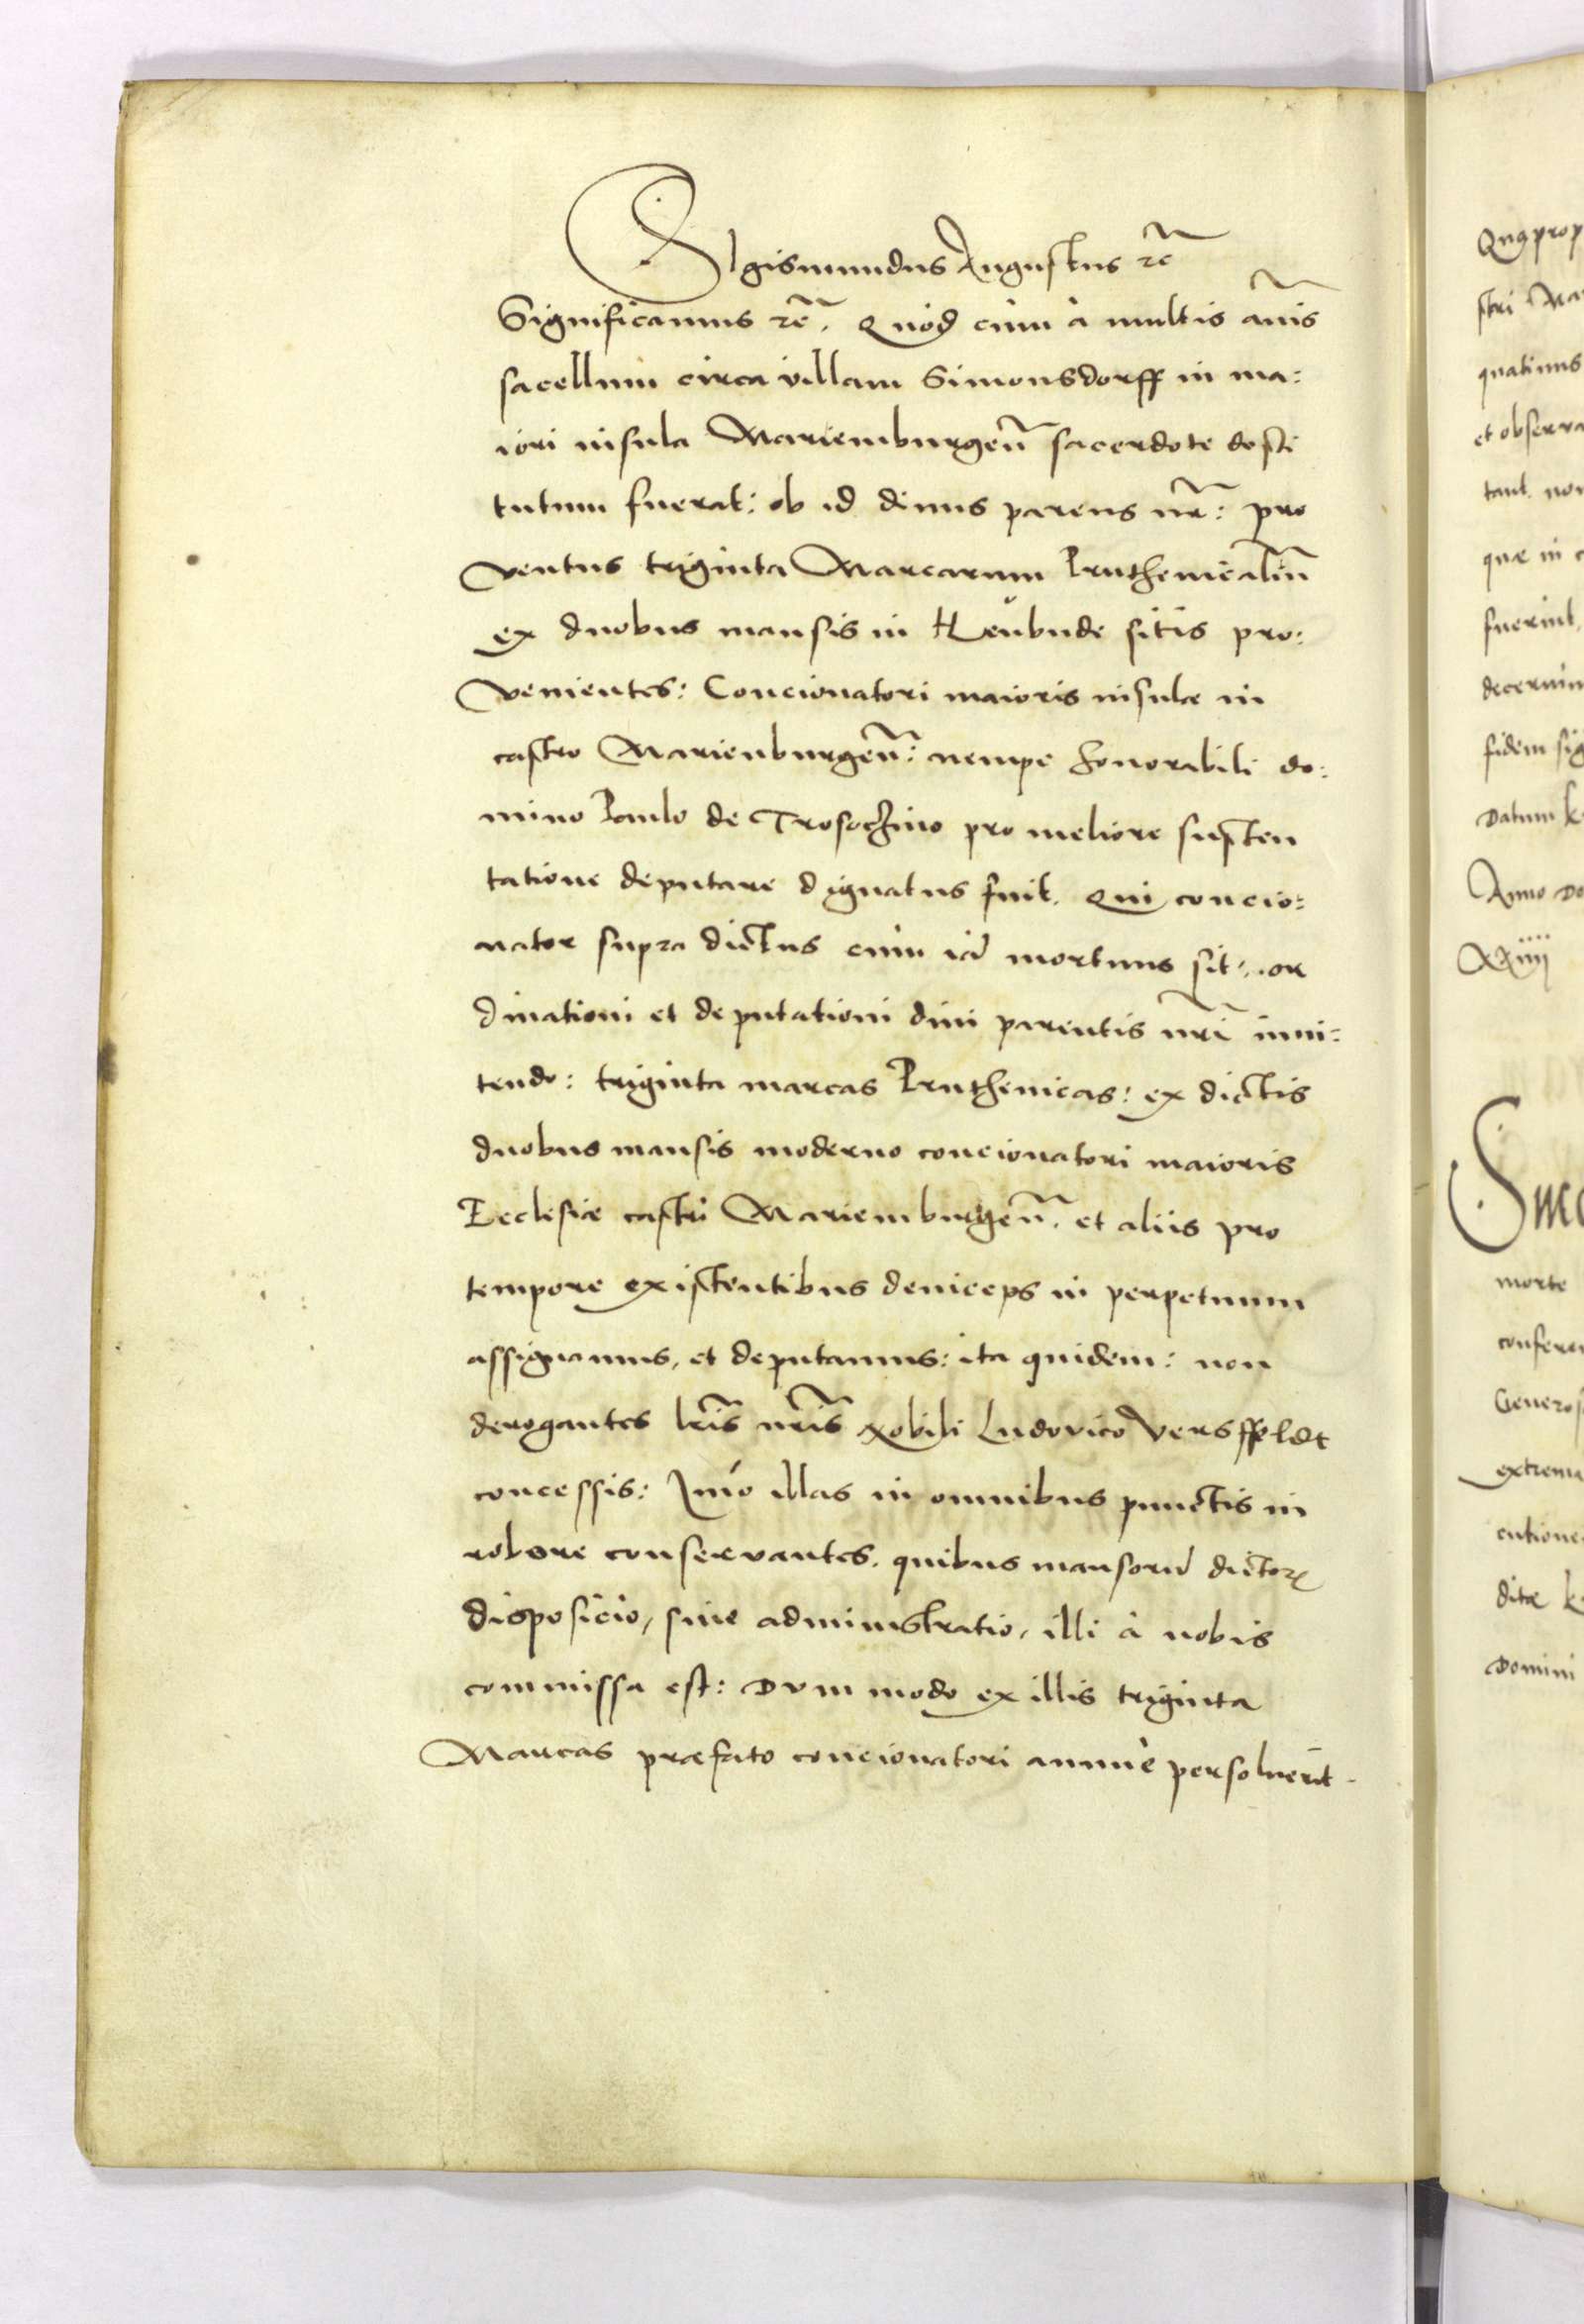 SIgismundus Augustus rc̃
Significamus rc̃. Quòd cùm à multis ãnis
sacellum circa villam Simonsdorff in ma:
iori insula Mariemburgeñ sacerdote desti
tutum fuerat: ob id diuus parens nr̃: pro
ventus triginta Marcarum Pruthenicaliũ
ex duobus mansis in Heŭbude sitis pro:
venientes: Concionatori maioris insulæ in
castro Marienburgeñ: nempe honorabili do:
mino Paulo de Trosochino pro meliore susten
tatione deputare dignatus fuit. Qui concio:
nator supra dictus cùm iã mortuus sit: or
dinationi et deputationi diui parentis nr̃i inni:
tendo: triginta marcas Pruthenicas: ex dictis
duobus mansis moderno concionatori maioris
Ecclesiæ castri Mariemburgeñ. et aliis pro
tempore existentibus deinceps in perpetuum
assignamus, et deputamus: ita quidem: non
derogantes lr̃is nr̃is Nobili Ludovico Versffeldt
concessis: Imó illas in omnibus punctis in
robore conservantes. quibus mansorũ dictorꝝ
disposicio, siue administratio, illi à nobis
commissa est: Dum modo ex illis triginta
Marcas præfato concionatori annue persoluerit.
Quaprop
stri Ma
quatinus
et observa
tant. non
quæ in c
fuerint,
decernim
fidem sig
Datum
Anno Do
XXiiii
morte
conferen
Generos
extrema
cutione
ditæ
Domini